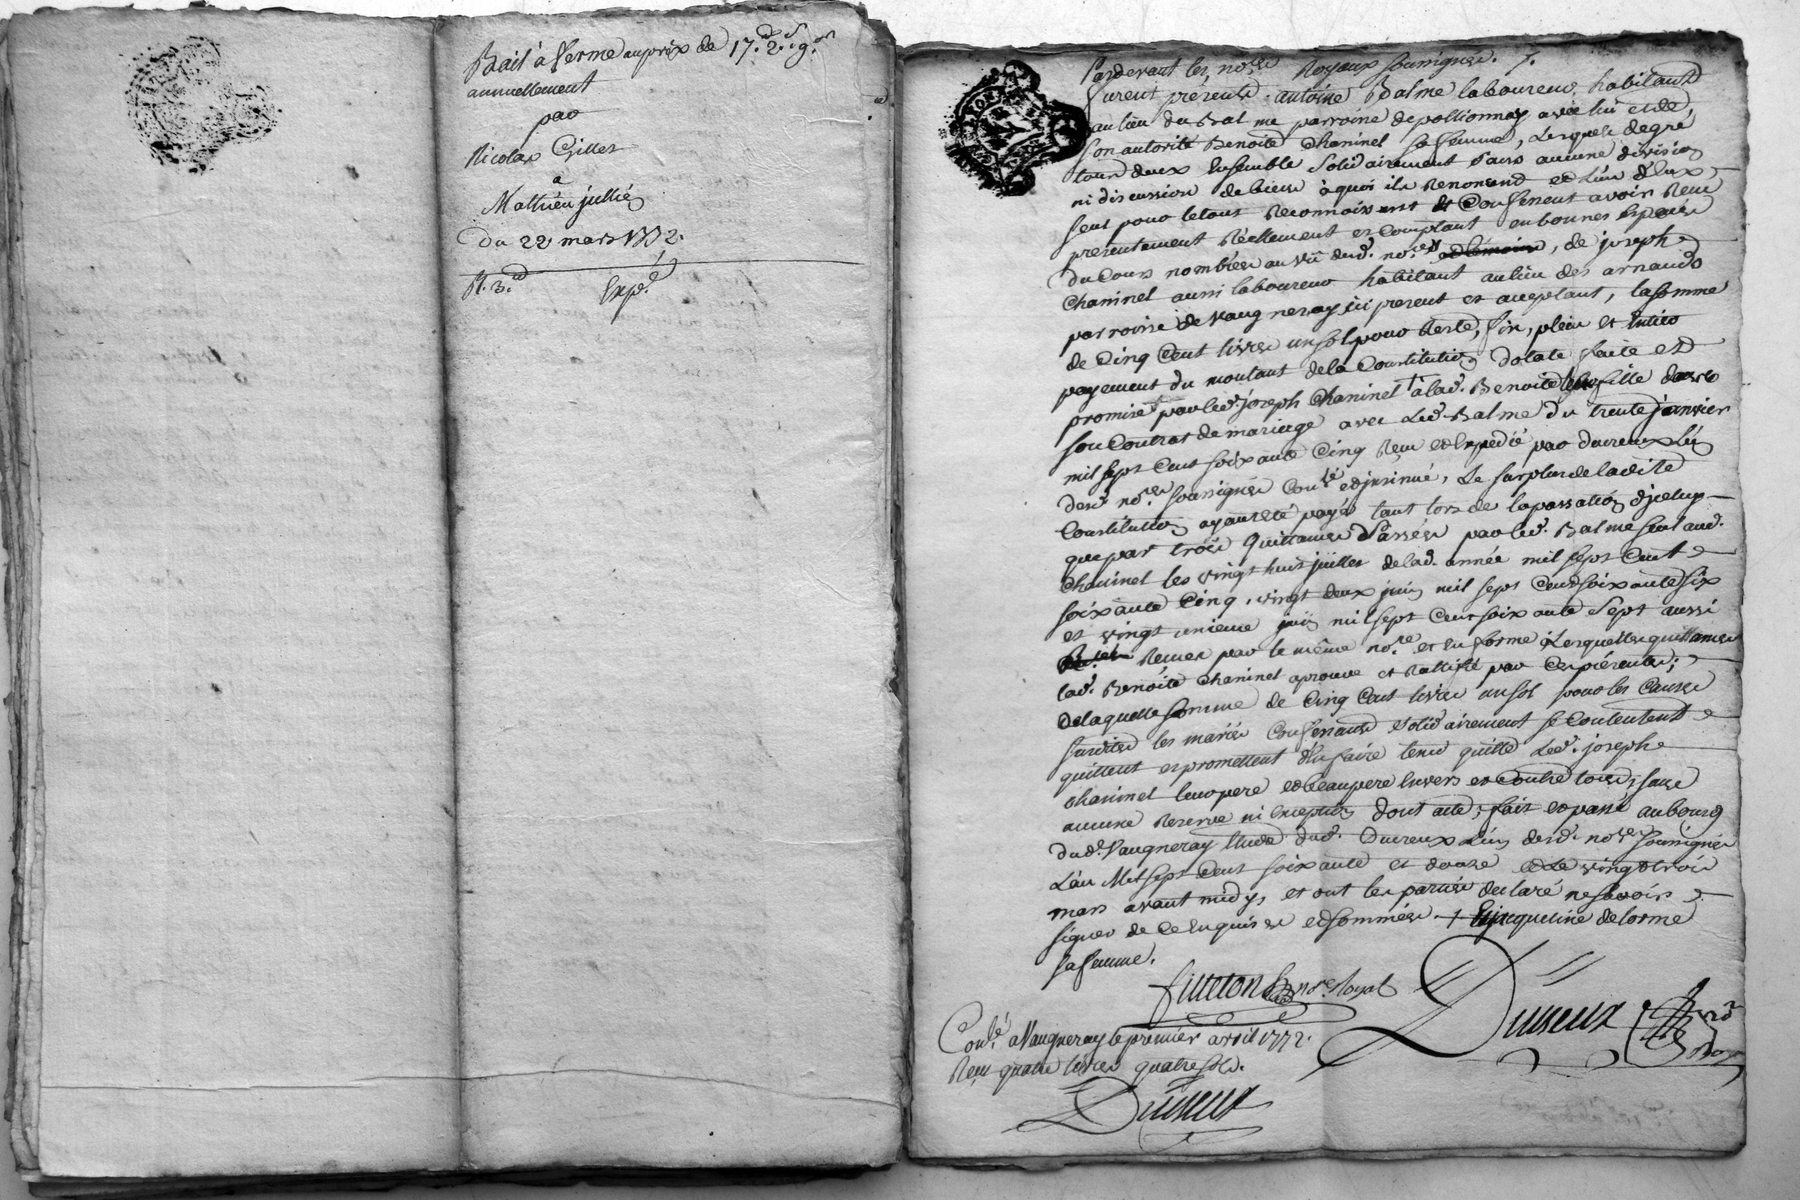 Bail à ferme au prix de 17.# 2.s 9.d
annuellement
par
Nicolax Gillet
a
Mathieu jullié
Du 22 mars 1772.
R. 3.e Exp.é
Pardevant les no.res Royaux soussignés. /.
furent présents antoine Balme laboureur habitant
au lieu du Balme parroisse de pollionnay avec lui et de
son autorité Benoite Chaninel sa femme, Lesquels de gré
tous deux Ensemble solidairement sans aucune division
ni discussion de biens à quoi ils Renoncent et L'un d'Eux
seul pour le tout Reconnoissent et Confessent avoir Reçu
presentement Réellement et Comptant en bonnes Espèces
du Cours nombrées au vû desd. no.res, de joseph
Chaninel aussi laboureur habitant au lieu des arnauds
parroisse de Vaugneray ici present et acceptant, la somme
de Cinq Cent livres un sol pour Reste, fin, plein et Entier
payement du montant de la Constitution Dotale faite et
promise par led. joseph Chaninel + à lad. Benoite sa fille dans
son Contrat de mariage avec Led. Balme du trente janvier
mil sept Cent soixante Cinq Reçu et Expedié par Ducreux L'un
desd. no.res soussignés Con.lé et insinué, Le surplus de ladite
Constitution ayant été payé tant lors de la passation d'jcelui
que par trois quittances Passées par led. Balme seul aud.
Chaninel les vingt huit juillet de lad. année mil sept Cent
soixante Cinq, vingt deux juin mil sept Cent soixante six
et vingt unieme juin mil sept Cent soixante sept aussi
Reçues par le même no.re et En forme Lesquelles quittances
lad. Benoite Chaninel aprouve et Rattifie par Ces présentes;
de laquelle somme de Cinq Cent livres un sol pour les Causes
susdites les mariés Confessants solidairement se Contentent
quittent et promettent d'En faire tenir quitte Led. joseph
Chaninel leur pere et beaupere Envers et Contre tous, sans
aucune Reserve ni Exception dont acte; fait et passé au bourg
dud. Vaugneray Etude dud. Ducreux L'un desd. no.res soussignés
L'an Mil sept Cent soixante et douze et Le vingt trois
mars avant midy, et ont les parties declaré ne savoir
signer de Ce Enquises et sommées + Et jacqueline delorme
sa femme.
filleton no.re Royal
Ducreux
Con.lé a Vaugneray le premier avril 1772.
Reçu quatre livres quatre sols.
Ducreux